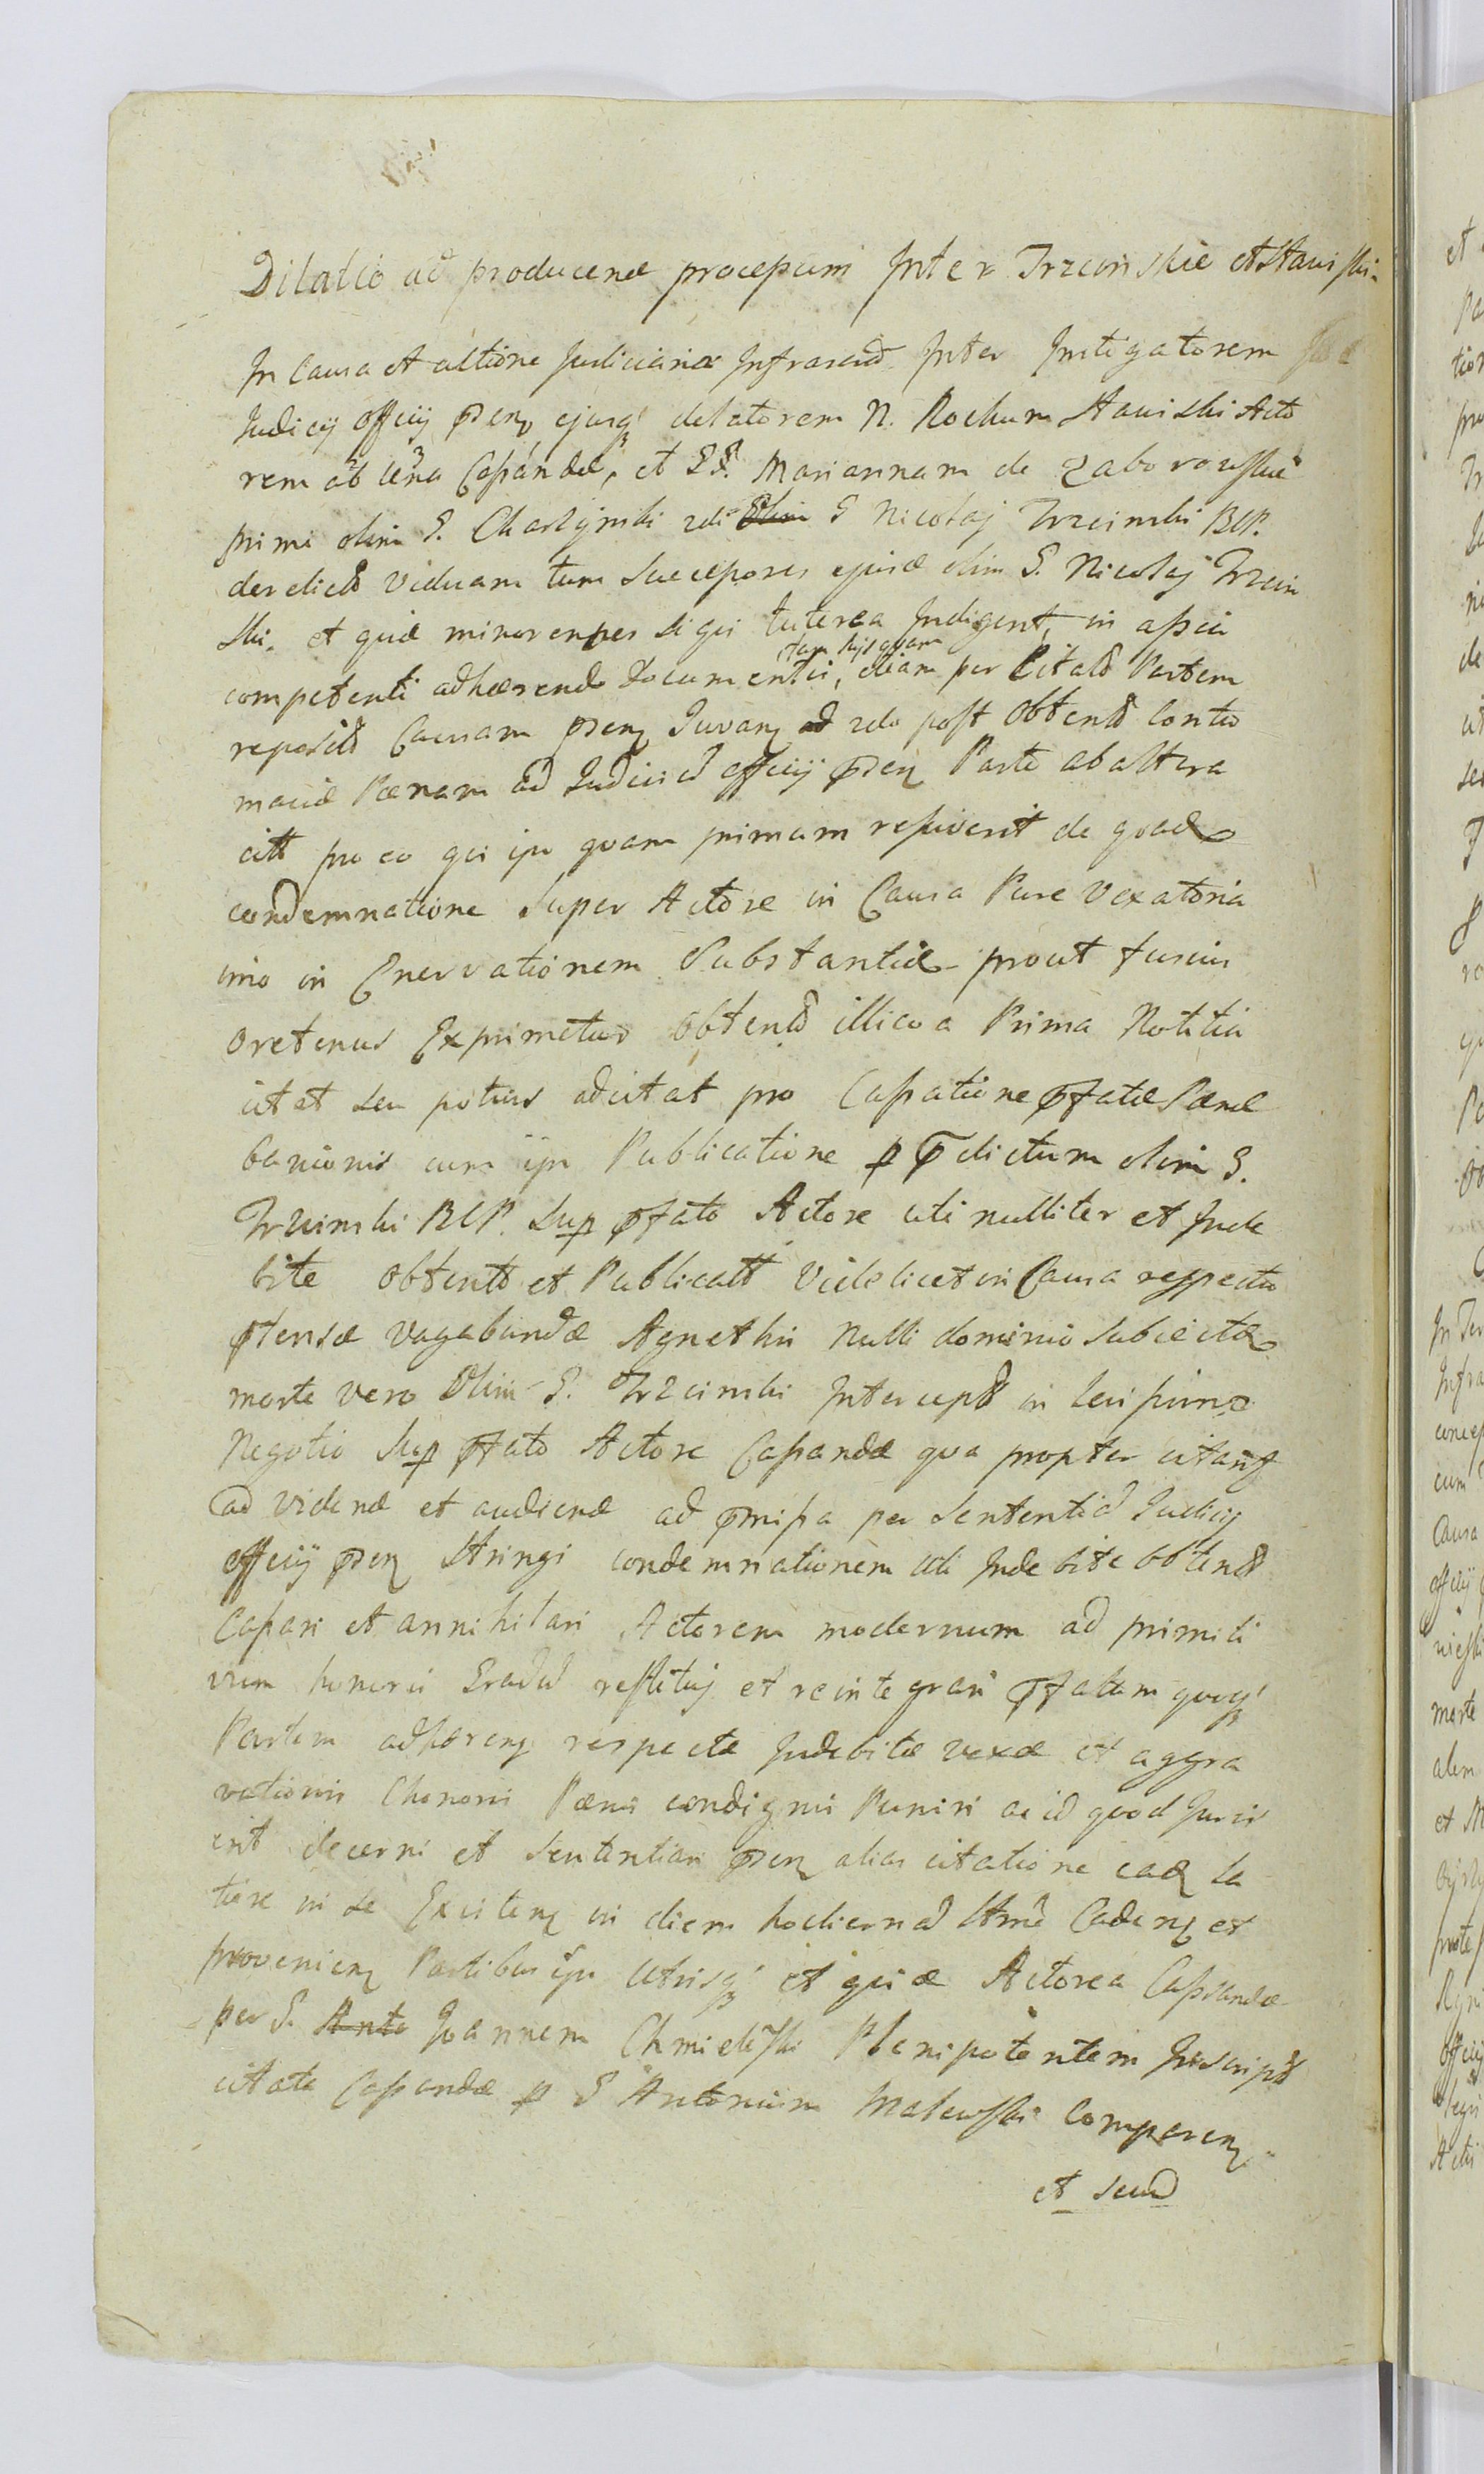 Dilatio ad producend processum Inter Trzcinskie et Stawiski
In Causa et actione Judiciaria Infrascrid Inter Instigatorem
Judicij officij pnsen ejusq delatorem N. Rochum Stawiski Acto
rem ab cena Cassandae, et Gd. Mariannam de Zaborowskie
primi olim G. Charzynski 2di Olim G Nicolaj Trzcinski BCP.
derelictd Viduam tum Successores ejusd olim G. Nicolaj Trzcin
ski. et quid minorennes si qui tuterea Indigent, in assia
tam hijs quam
competenti adhaerendo documentis, etiam per Citatd Partem
reposcitd Causam pnsen Juvan ad 2do post Obtentd Contu
macia Poenam ad Judicid officij pnsen Parte ab altera
citt pro eo qui ipi quam primum resciverit de quad
condemnatione Super Actore in Causa Pure Vexatoria
imo in Enervationem Substantiae prout fusius
oretenus Exprimetur obtentd illico a Prima Notitia
citat seu potius adcitat pro Cassatione pfatae Poenae
bannionis cum ipi Publicatione p pdictum olim G.
Trzcinski BCP. Sup pfato Actore uti nulliter et Inde
bite obtentt et Publicatt Videlicet in Causa respectu
ptensae vagabundae Agnethis Nulli dominio subiectae
morte vero Olim G. Trzcinski Interceptd in levissimo
Negotio Sup pfato Actore Cassandae qua propter citan
ad Vidend et audiend ad pmissa per Sententid Judicij
officij pnsen Stringi condemnationem uti Indebite obtentd
Cassari et annihilari Actorem modernum ad primiti
vum honoris Gradud restituj et reintegrari pfatam quoq
Partem adhaeren respectu Indebitae vexae et aggra
vationis Chonoris Poenis condignis Puniri ac id quod Juris
erit decerni et Sententiari pnsen alias citatione ead la
tiore in se Existen in diem hodiernd Stme Caden et
provenien Partibus ipi utrisq et quid Actorea Cassandae
per G. Anto Joannem Chmielewski Plenipotentem Inscriptd
citata Cassandae p G Antonium Malewski Comparen
et secud